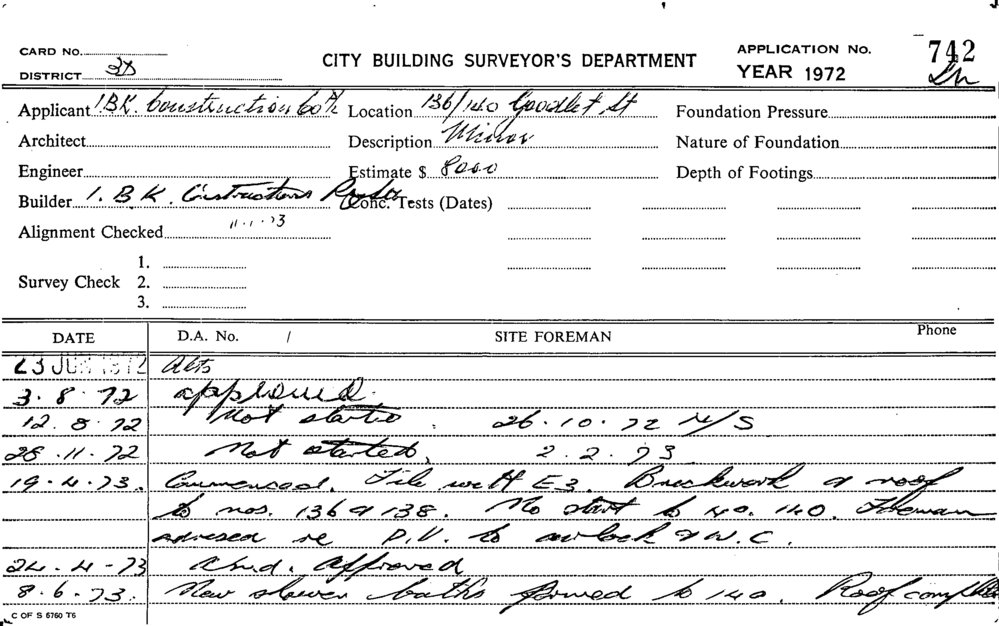 CARD No. CITY BUILDING SURVEYOR'S DEPARTMENT APPLICATION No. 742
DISTRICT YEAR 1972
Applicant I.B.K. Construction Co P/L Location 136/140 Goodlet St Foundation Pressure
Architect Description Minor Nature of Foundation
Engineer Estimate $ 8000 Depth of Footings
Builder I.B.K. Constructions Conc. Tests (Dates)
Alignment Checked 11.1.73
1.
Survey Check 2.
3.
DATE D.A. No. / SITE FOREMAN Phone
23 JUN 1972 Alts
3.8.72 approved.
12.8.72 Not started. 26.10.72 N/S
28.11.72 Not started. 2.2.73
19.4.73. Commenced. File with E3. Brickwork & roof
to nos. 136 & 138. No start to 140. Foreman
advised re P.V. to airlock & W.C.
24.4.73 Amd. Approved
8.6.73. New slower baths formed to 140. Roof
C OF S 6760 T6